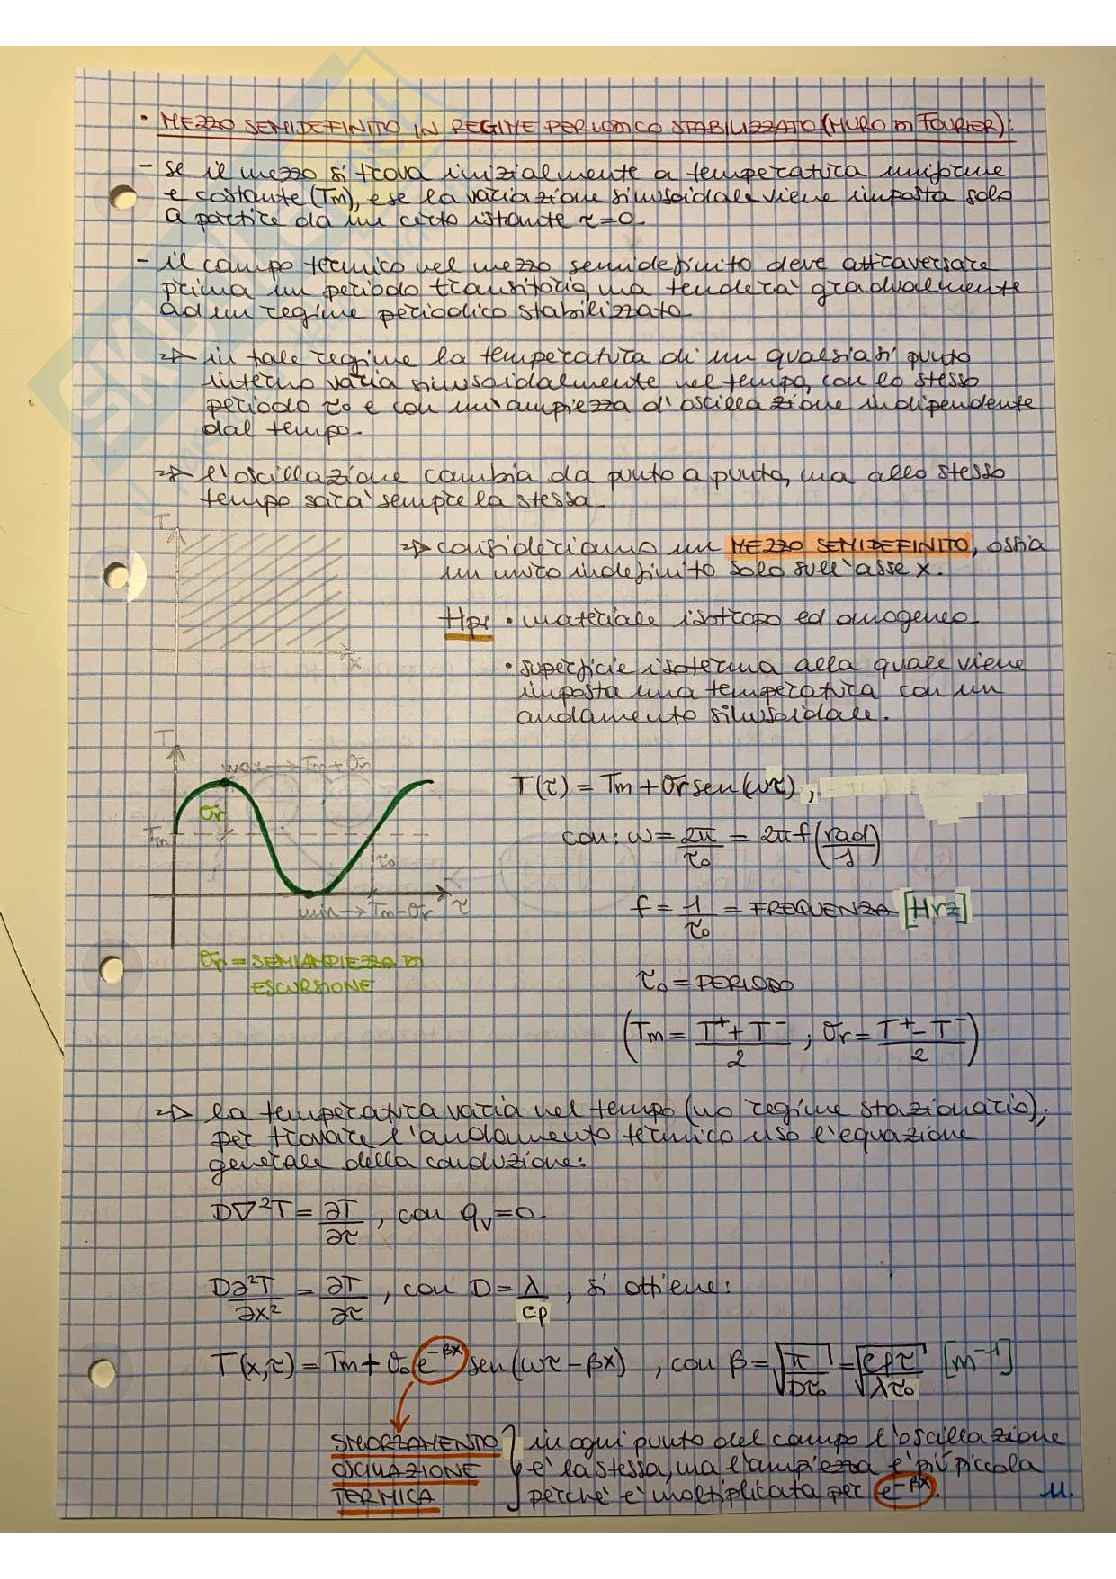 • MEZZO SEMIDEFINITO IN REGIME PERIODICO STABILIZZATO (MURO DI FOURIER):
- se il mezzo si trova inizialmente a temperatura uniforme
e costante (Tm), e se la variazione sinusoidale viene imposta solo
a partire da un certo istante τ=0.
- il campo termico nel mezzo semidefinito deve attraversare
prima un periodo transitorio ma tenderà gradualmente
ad un regime periodico stabilizzato.
⇒ in tale regime la temperatura di un qualsiasi punto
interno varia sinusoidalmente nel tempo, con lo stesso
periodo τ₀ e con un'ampiezza d'oscillazione indipendente
dal tempo.
⇒ l'oscillazione cambia da punto a punto, ma allo stesso
tempo sarà sempre la stessa.
T
x
⇒ consideriamo un MEZZO SEMIDEFINITO, ossia
un muro indefinito solo sull'asse x.
Hp: • materiale isotropo ed omogeneo.
• superficie isoterma alla quale viene
imposta una temperatura con un
andamento silusoidale.
T
max → Tm+σr
σr
Tm
τ₀
min → Tm-σr
τ
σr = SEMIAMPIEZZA DI
ESCURSIONE
T(τ) = Tm + σr sen(ωτ),
con: ω = 2π/τ₀ = 2πf (rad/s)
f = 1/τ₀ = FREQUENZA [Hrz]
τ₀ = PERIODO
(Tm = T⁺+T⁻/2 ; σr = T⁺-T⁻/2)
⇒ la temperatura varia nel tempo (no regime stazionario),
per trovare l'andamento termico uso l'equazione
generale della conduzione:
D∇²T = ∂T/∂τ, con qv=0.
D∂²T/∂x² = ∂T/∂τ, con D = λ/cρ, si ottiene:
T(x,τ) = Tm + σ₀ e^-βx sen(ωτ-βx), con β = √π/Dτ₀ = √cρπ/λτ₀ [m⁻¹]
SMORZAMENTO
OSCILLAZIONE
TERMICA
in ogni punto del campo l'oscillazione
è la stessa, ma l'ampiezza è più piccola
perché è moltiplicata per e^-βx.